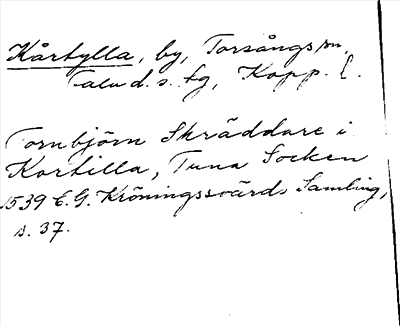 Kårtylla, by, Torsångs sn,
Falu d.s. tg, Kopp. l.
Tornbjörn Skräddare i
Kortilla, Tuna Socken
1539 C.G. Kröningssvärds Samling,
s. 37.